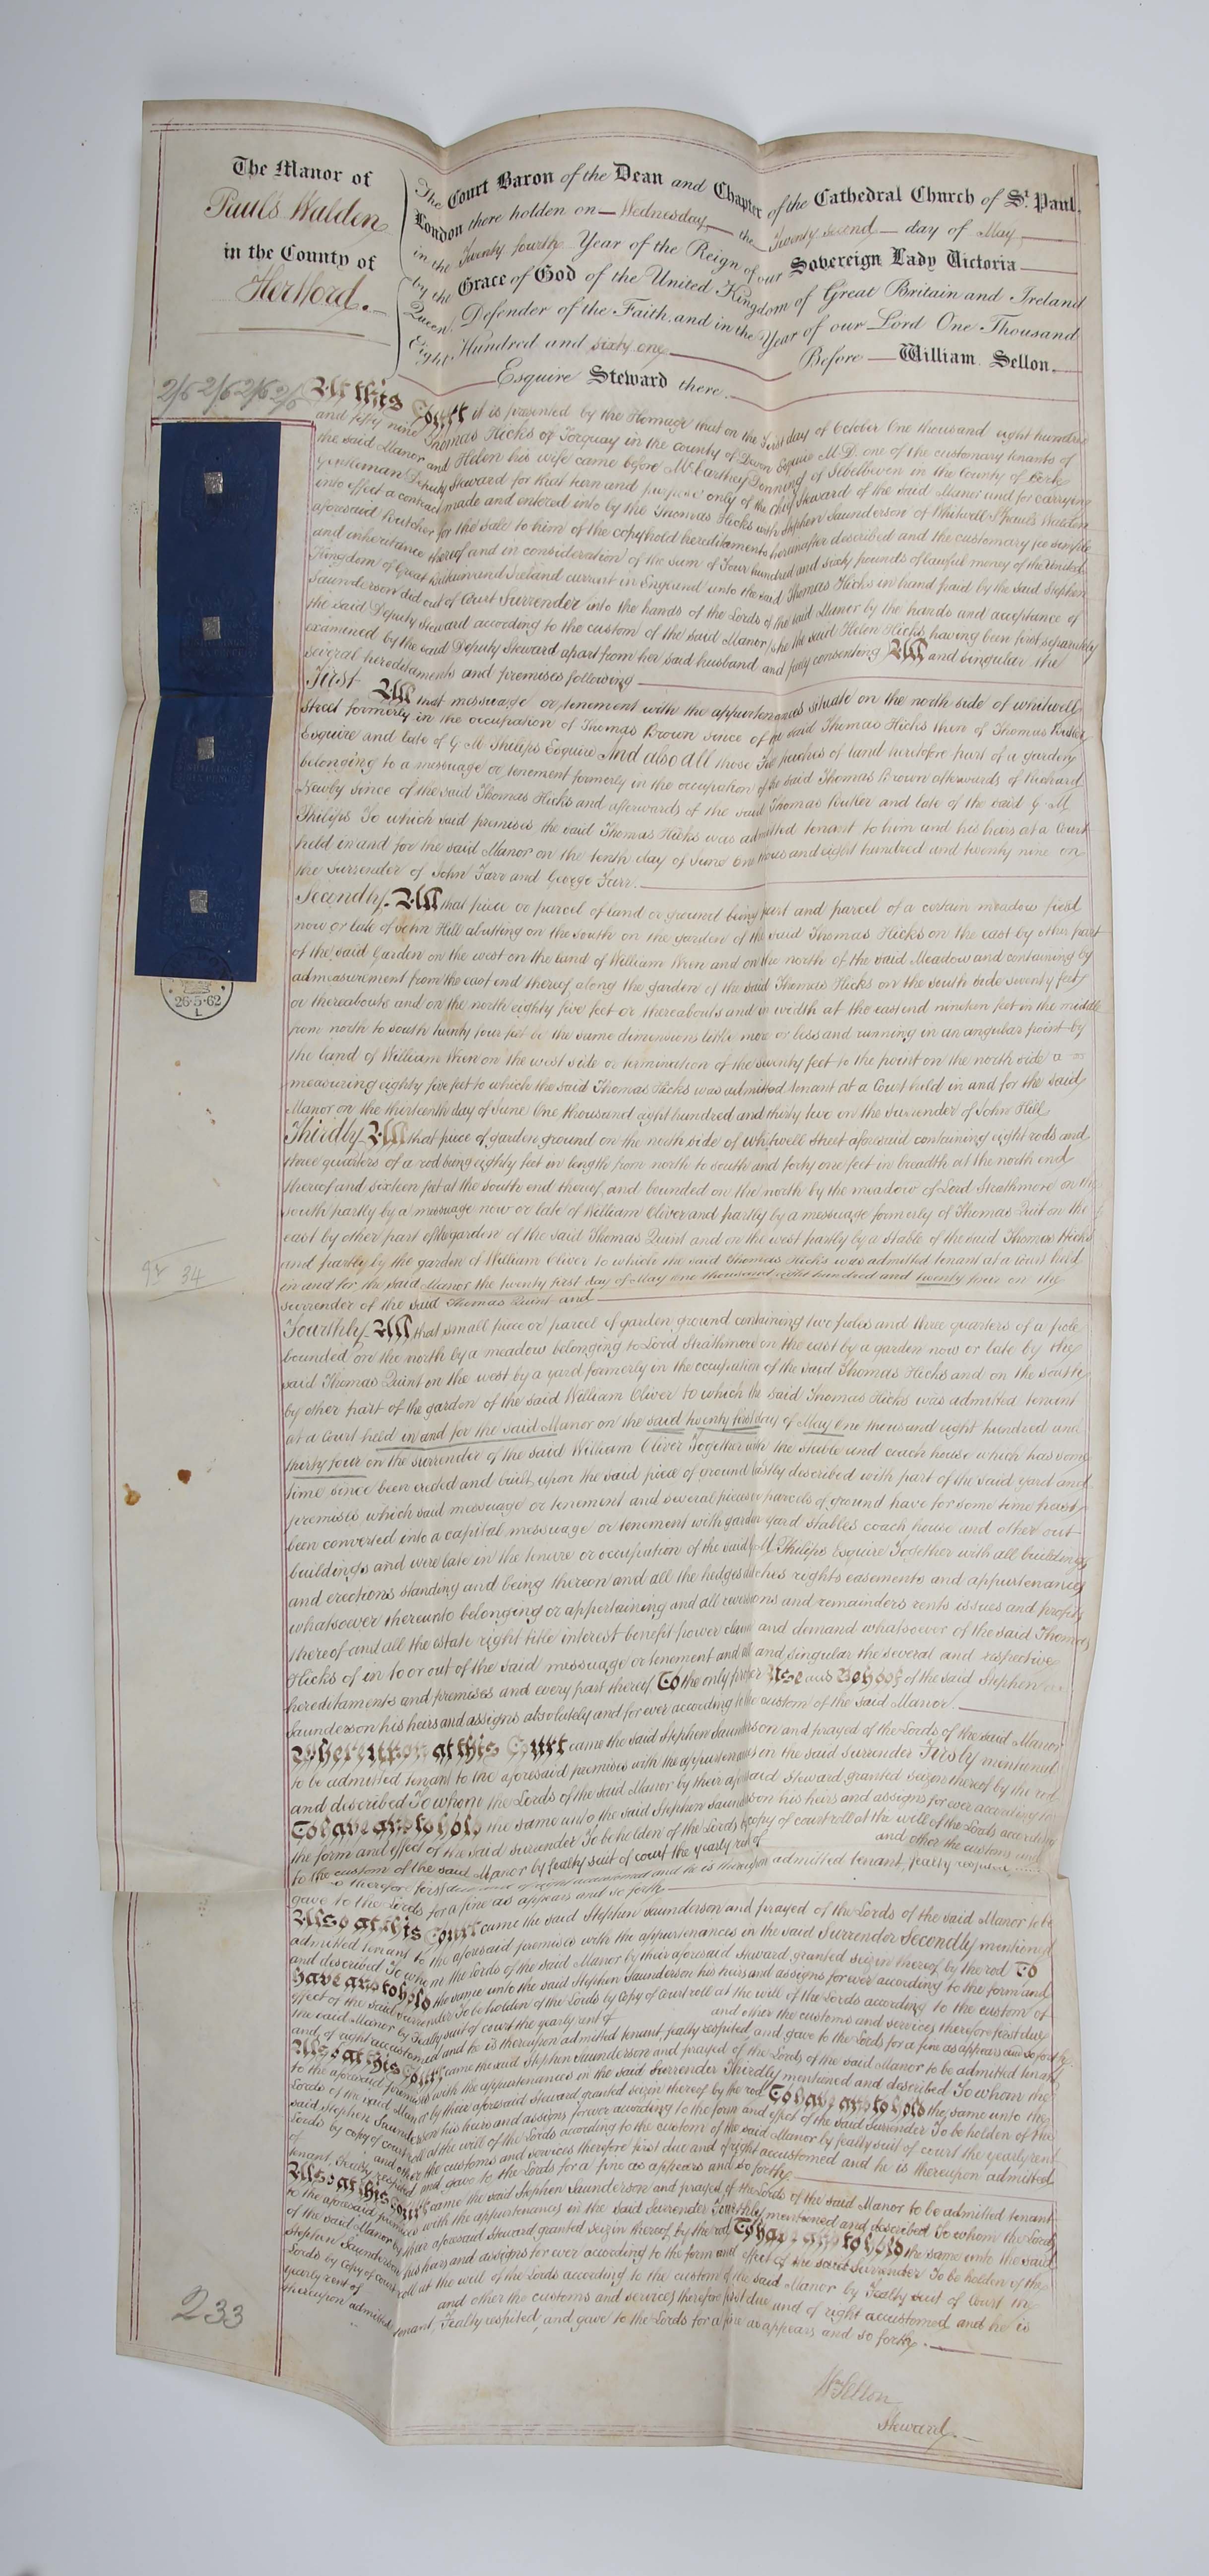 The Manor of
Pauls Walden
in the County of
Hertford.
The Court Baron of the Dean and Chapter of the Cathedral Church of St. Paul,
London there holden on Wednesday the Twenty second day of May
in the Twenty fourth Year of the Reign of our Sovereign Lady Victoria
by the Grace of God of the United Kingdom of Great Britain and Ireland
Queen, Defender of the Faith, and in the Year of our Lord One Thousand
Eight Hundred and sixty one Before William Sellon
Esquire Steward there.
2/6 2/6 2/6 2/6
At this Court it is presented by the Homage that on the First day of October One thousand eight hundred
and fifty nine Thomas Hicks of Torquay in the county of Devon Esquire M.D. one of the customary tenants of
the said Manor and Helen his wife came before McCarthey Denning of in the County of Cork
Gentleman Deputy Steward for that turn and purpose only of the chief Steward of the said Manor and for carrying
into effect a contract made and entered into by the Thomas Hicks with Stephen Saunderson of Whitwell St Pauls Walden
aforesaid Butcher for the sale to him of the copyhold hereditaments hereinafter described and the customary fee simple
and inheritance thereof and in consideration of the sum of Four hundred and sixty pounds of lawful money of the United
Kingdom of Great Britain and Ireland current in England unto the said Thomas Hicks in hand paid by the said Stephen
Saunderson did out of Court Surrender into the hands of the Lords of the said Manor by the hands and acceptance of
the said Deputy Steward according to the custom of the said Manor (she the said Helen Hicks having been first separately
examined by the said Deputy Steward apart from her said husband and fully consenting All and singular the
several hereditaments and premises following
First All that messuage or tenement with the appurtenances situate on the north side of whitwell
Street formerly in the occupation of Thomas Brown since of the said Thomas Hicks then of Thomas
Esquire and late of G. M. Philips Esquire And also all those perches of land heretofore part of a garden
belonging to a messuage or tenement formerly in the occupation of the said Thomas Brown afterwards of Richard
Newby since of the said Thomas Hicks and afterwards of the said Thomas and late of the said G M
Philips To which said premises the said Thomas Hicks was admitted tenant to him and his heirs at a Court
held in and for the said Manor on the tenth day of June One thousand eight hundred and twenty nine on
the surrender of John Farr and George Farr.
Secondly. All that piece or parcel of land or ground being part and parcel of a certain meadow field
now or late of John Hill abutting on the south on the garden of the said Thomas Hicks on the east by other part
of the said Garden on the west on the land of William Wren and on the north of the said Meadow and containing by
admeasurement from the east end thereof along the garden of the said Thomas Hicks on the south side seventy feet
or thereabouts and on the north eighty five feet or thereabouts and in width at the east end nineteen feet in the middle
from north to south twenty four feet be the same dimensions little more or less and running in an angular point by
the land of William Wren on the west side or termination of the seventy feet to the point on the north side a
measuring eighty five feet to which the said Thomas Hicks was admitted tenant at a Court held in and for the said
Manor on the thirteenth day of June One thousand eight hundred and thirty two on the surrender of John Hill
Thirdly All that piece of garden ground on the north side of whitwell Street aforesaid containing eight rods and
three quarters of a rod being eighty feet in length from north to south and forty one feet in breadth at the north end
thereof and sixteen feet at the south end thereof, and bounded on the north by the meadow of Lord Strathmore on the
south partly by a messuage now or late of William Oliver and partly by a messuage formerly of Thomas Quint on the
east by other part of the garden of the said Thomas Quint and on the west partly by a stable of the said Thomas Hicks
and partly by the garden of William Oliver to which the said Thomas Hicks was admitted tenant at a Court held
in and for the said Manor the twenty first day of May One thousand eight hundred and twenty four on the
surrender of the said Thomas Quint and
Fourthly All that small piece or parcel of garden ground containing two poles and three quarters of a pole
bounded on the north by a meadow belonging to Lord Strathmore on the east by a garden now or late by the
said Thomas Quint on the west by a yard formerly in the occupation of the said Thomas Hicks and on the south
by other part of the garden of the said William Oliver to which the said Thomas Hicks was admitted tenant
at a Court held in and for the said Manor on the said twenty first day of May One thousand eight hundred and
thirty four on the surrender of the said William Oliver Together with the stable and coach house which has some
time since been erected and built upon the said piece of ground lastly described with part of the said yard and
premises which said messuage or tenement and several pieces or parcels of ground have for some time past
been converted into a capital messuage or tenement with garden yard stables coach house and other out
buildings and were late in the tenure or occupation of the said G M Philips Esquire Together with all buildings
and erections standing and being thereon and all the hedges ditches rights easements and appurtenances
whatsoever thereunto belonging or appertaining and all reversions and remainders rents issues and profits
thereof and all the estate right title interest benefit power claim and demand whatsoever of the said Thomas
Hicks of in to or out of the said messuage or tenement and all and singular the several and respective
hereditaments and premises and every part thereof To the only proper Use and Behoof of the said Stephen
Saunderson his heirs and assigns absolutely and for ever according to the custom of the said Manor.
Whereupon at this Court came the said Stephen Saunderson and prayed of the Lords of the said Manor
to be admitted tenant to the aforesaid premises with the appurtenances on the said surrender Firstly mentioned
and described To whom the Lords of the said Manor by their aforesaid Steward granted seizin thereof by the rod
To have and to hold the same unto the said Stephen Saunderson his heirs and assigns for ever according to
the form and effect of the said surrender To be holden of the Lords by copy of court roll at the will of the Lords according
to the custom of the said Manor by fealty suit of court the yearly rent of and other the customs and
therefore first due and of right accustomed and he is thereupon admitted tenant, fealty respited
gave to the Lords for a fine as appears and so forth
Also at this Court came the said Stephen Saunderson and prayed of the Lords of the said Manor to be
admitted tenant to the aforesaid premises with the appurtenances in the said Surrender Secondly mentioned
and described To whom the Lords of the said Manor by their aforesaid Steward granted seizin thereof by the rod To
have and to hold the same unto the said Stephen Saunderson his heirs and assigns for ever according to the form and
effect of the said surrender To be holden of the Lords by Copy of Court roll at the will of the Lords according to the custom of
the said Manor by Fealty suit of court the yearly rent of and other the customs and services therefore first due
and of right accustomed and he is thereupon admitted tenant, fealty respited and gave to the Lords for a fine as appears and so forth
Also at this Court came the said Stephen Saunderson and prayed of the Lords of the said Manor to be admitted tenant
to the aforesaid premises with the appurtenances in the said Surrender Thirdly mentioned and described To whom the
Lords of the said Manor by their aforesaid Steward granted seizin thereof by the rod To have and to hold the same unto the
said Stephen Saunderson his heirs and assigns forever according to the form and effect of the said Surrender To be holden of the
Lords by copy of court roll at the will of the Lords according to the custom of the said Manor by fealty suit of court the yearly rent
of and other the customs and services therefore first due and of right accustomed and he is thereupon admitted
tenant, fealty respited and gave to the Lords for a fine as appears and so forth
Also at this Court came the said Stephen Saunderson and prayed of the Lords of the said Manor to be admitted tenant
to the aforesaid premises with the appurtenances in the said Surrender Fourthly mentioned and described To whom the Lords
of the said Manor by their aforesaid Steward granted Seizin thereof by the rod To have and to hold the same unto the said
Stephen Saunderson his heirs and assigns for ever according to the form and effect of the said Surrender To be holden of the
Lords by Copy of Court roll at the will of the Lords according to the custom of the said Manor by Fealty suit of Court the
yearly rent of and other the customs and services therefore first due and of right accustomed and he is
thereupon admitted tenant, Fealty respited, and gave to the Lords for a fine as appears and so forth.
26·5·62
L
34
233
W Sellon
Steward.